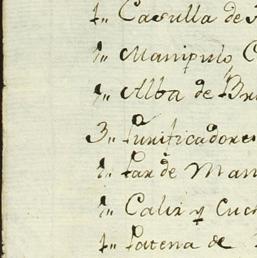 1,, Casulla de
1,, Manipulo
1,, Alba de Br
3,, Purificadores
1,, Par de Man
1,, Caliz y Cuch
1,, Patena de